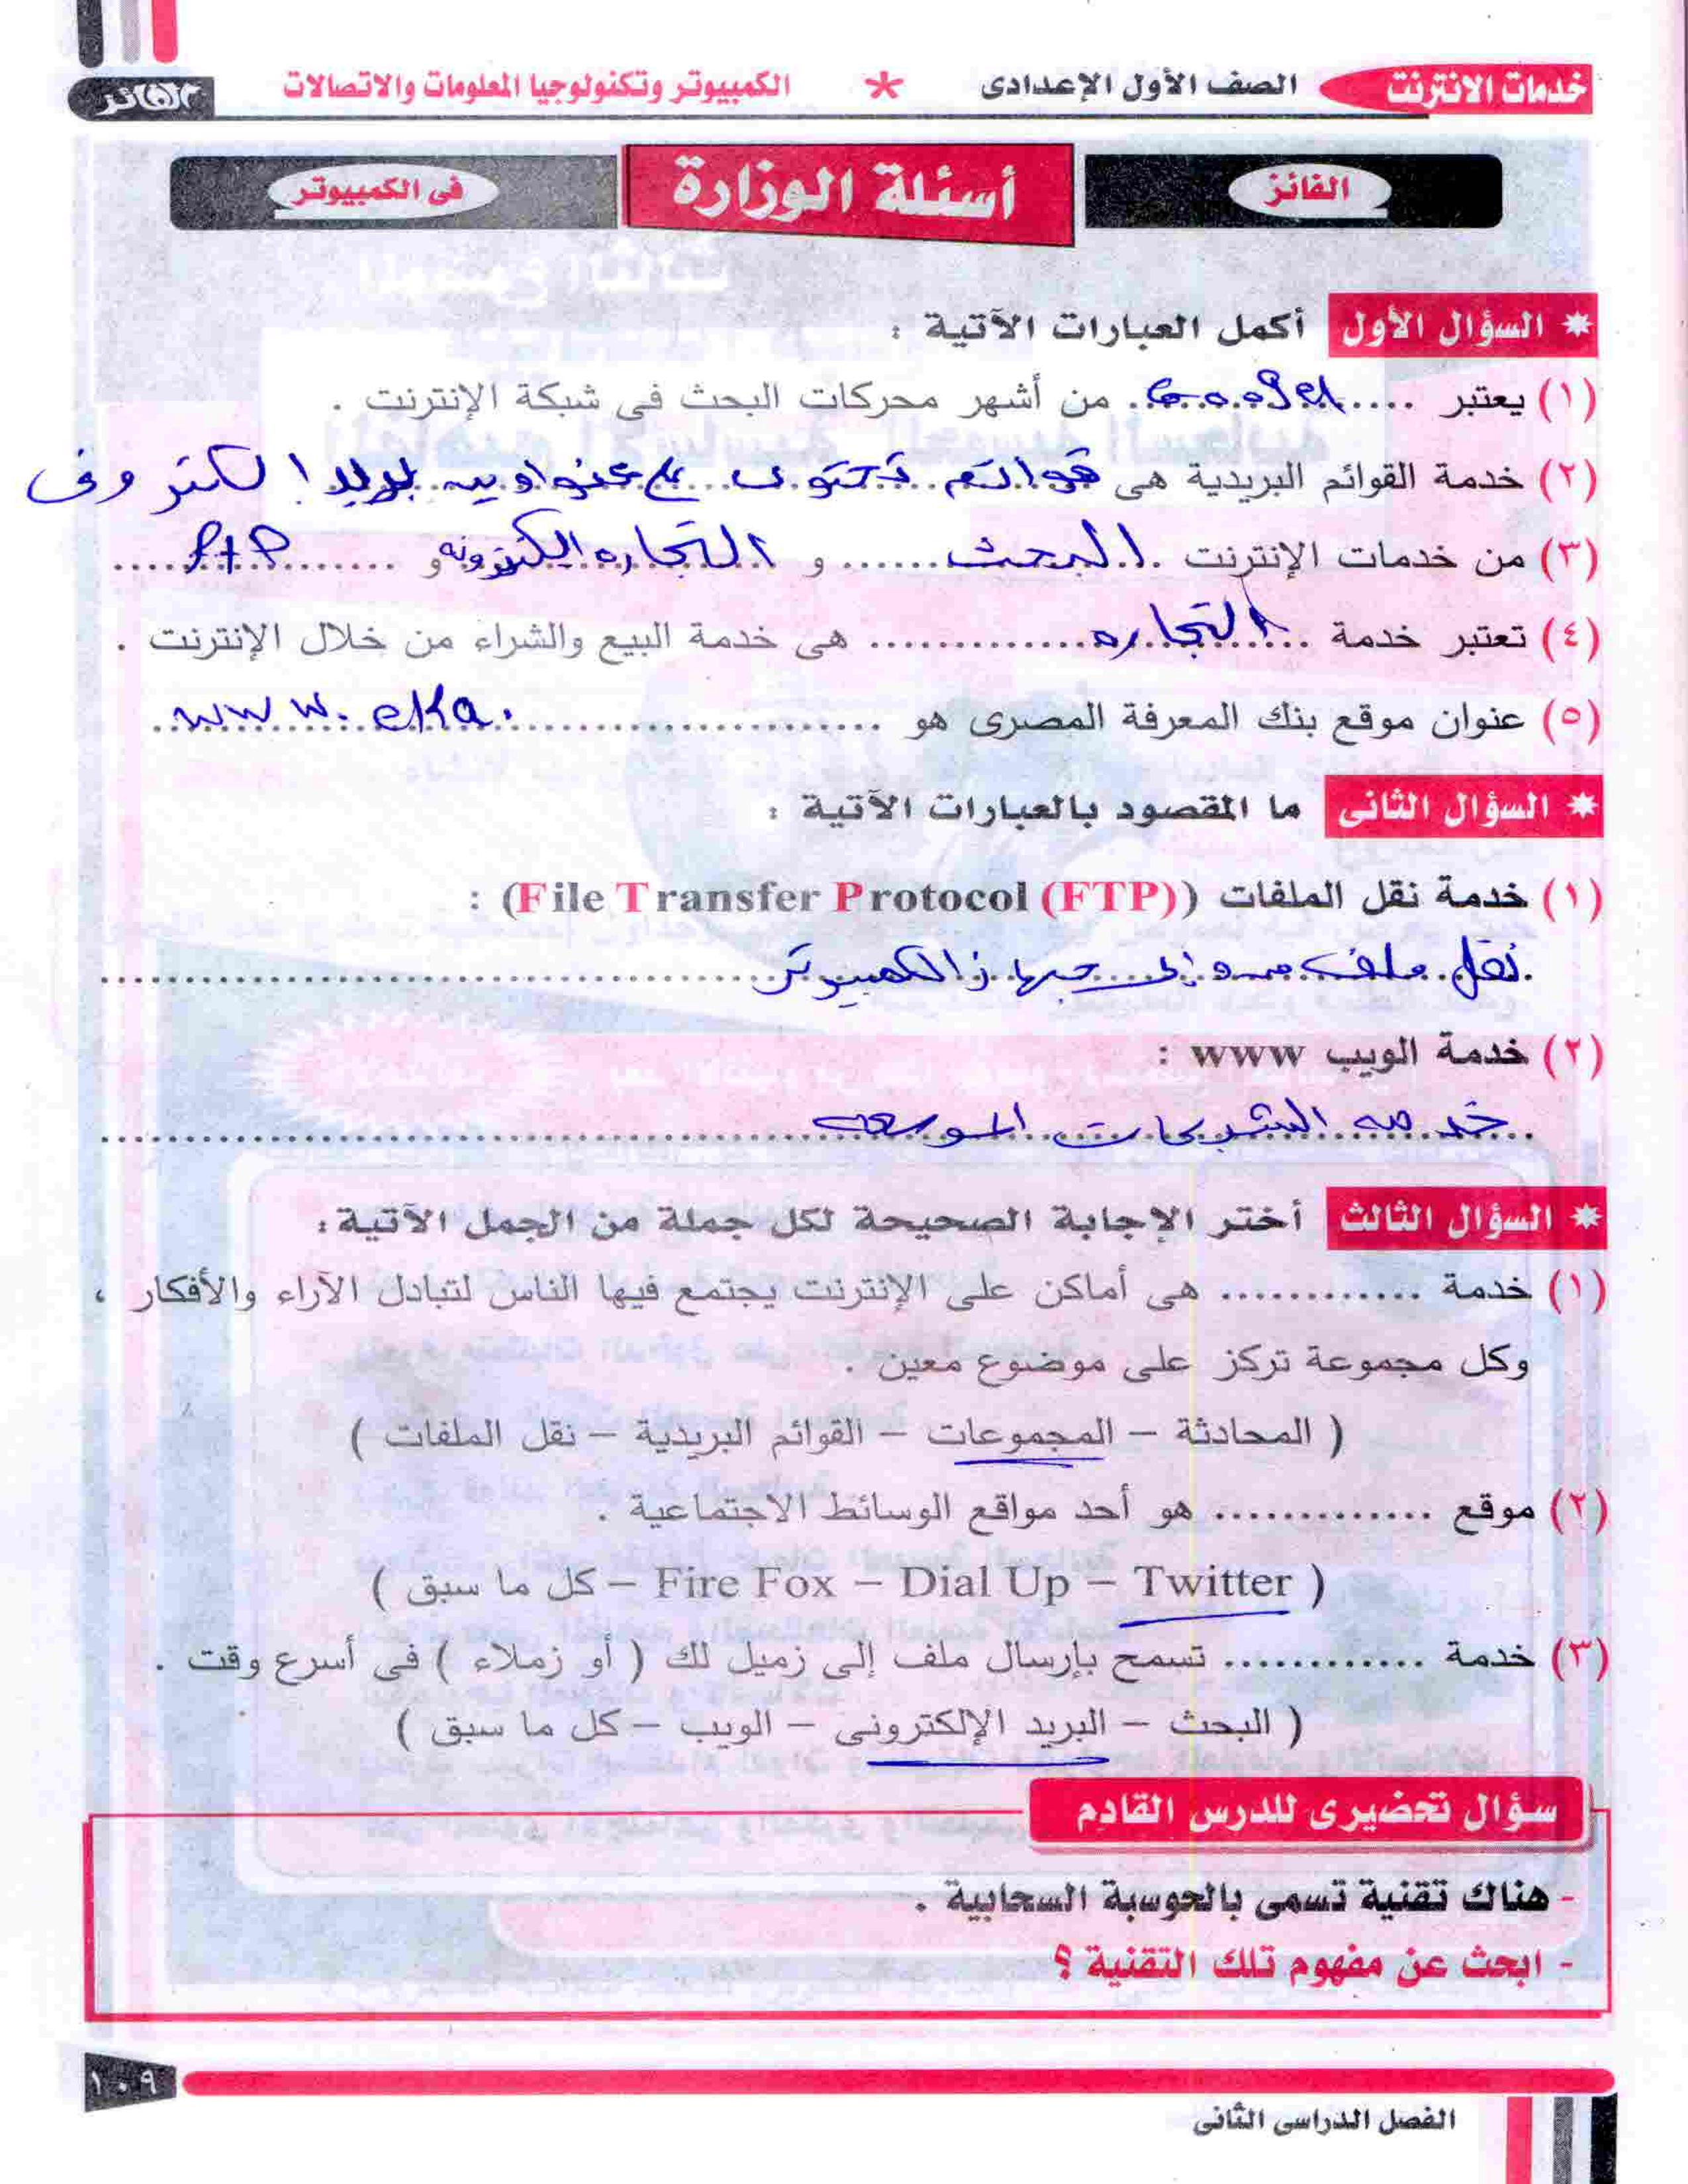 خدمات الانترنت الصف الأول الإعدادى * الكمبيوتر وتكنولوجيا المعلومات والاتصالات الفائز
الفائز أسئلة الوزارة فى الكمبيوتر
* السؤال الأول أكمل العبارات الآتية :
(١) يعتبر .... Google من أشهر محركات البحث فى شبكة الإنترنت .
(٢) خدمة القوائم البريدية هى قوائم تحتوى على عنوادين بريد الكتروف
(٣) من خدمات الإنترنت البحث ...... و التجاره الكترونه و ........ ftp ......
(٤) تعتبر خدمة التجاره .............. هى خدمة البيع والشراء من خلال الإنترنت .
(٥) عنوان موقع بنك المعرفة المصرى هو ...................... www. eKa.
* السؤال الثانى ما المقصود بالعبارات الآتية :
(١) خدمة نقل الملفات (File Transfer Protocol (FTP)) :
نقل ملف من إلى جهاز الكمبيوتر
(٢) خدمة الويب www :
خدمه الشبكات الموسعه
* السؤال الثالث أختر الإجابة الصحيحة لكل جملة من الجمل الآتية :
(١) خدمة ............. هى أماكن على الإنترنت يجتمع فيها الناس لتبادل الآراء والأفكار ،
وكل مجموعة تركز على موضوع معين .
( المحادثة – المجموعات – القوائم البريدية – نقل الملفات )
(٢) موقع .............. هو أحد مواقع الوسائط الاجتماعية .
( Twitter – Dial Up – Fire Fox – كل ما سبق )
(٣) خدمة ............. تسمح بإرسال ملف إلى زميل لك ( أو زملاء ) فى أسرع وقت .
( البحث – البريد الإلكترونى – الويب – كل ما سبق )
سؤال تحضيرى للدرس القادم
- هناك تقنية تسمى بالحوسبة السحابية .
- ابحث عن مفهوم تلك التقنية ؟
١٠٩
الفصل الدراسى الثانى